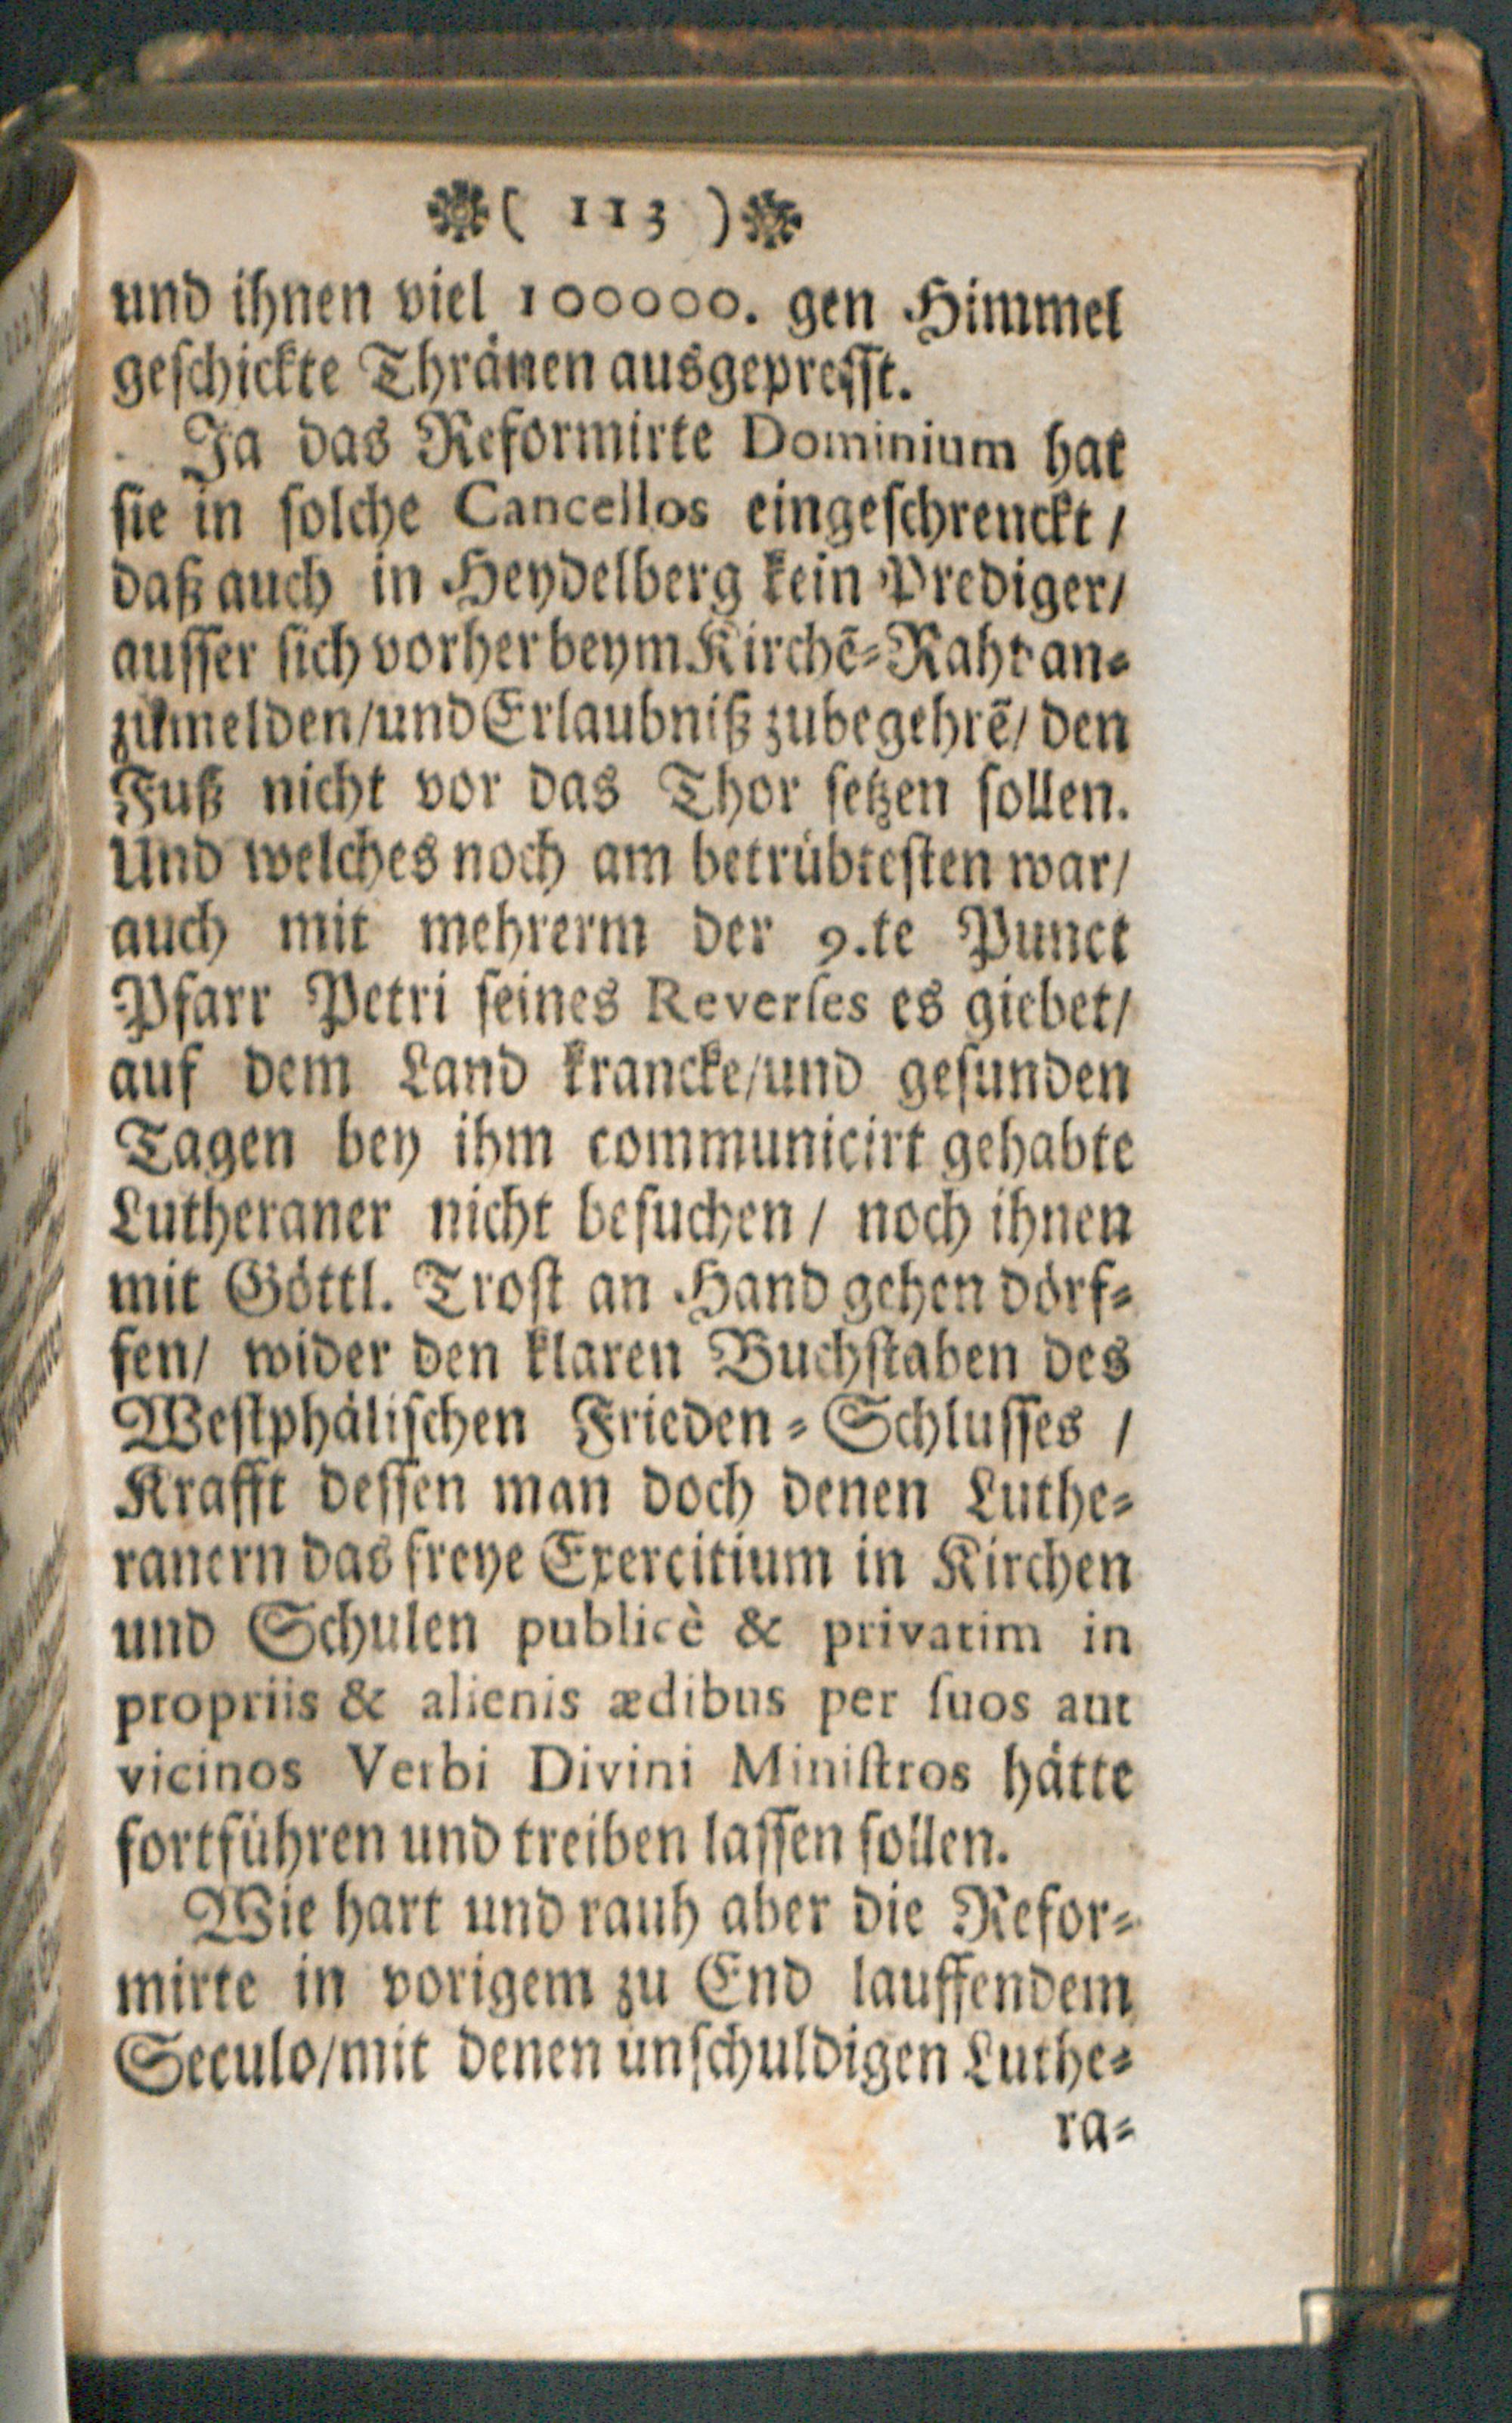 ( 113 )
und ihnen viel 100000. gen Himmel
geschickte Thränen ausgepresst.
Ja das Reformirte Dominium hat
sie in solche Cancellos eingeschrenckt /
daß auch in Heydelberg kein Prediger/
ausser sich vorher beym Kirchē-Raht an-
zumelden/und Erlaubniß zubegehrē/ den
Fuß nicht vor das Thor setzen sollen.
Und welches noch am betrübtesten war/
auch mit mehrerm der 9.te Punct
Pfarr Petri seines Reverses es giebet/
auf dem Land krancke/und gesunden
Tagen bey ihm communicirt gehabte
Lutheraner nicht besuchen / noch ihnen
mit Göttl. Trost an Hand gehen dörf-
fen/ wider den klaren Buchstaben des
Westphälischen Frieden-Schlusses /
Krafft dessen man doch denen Luthe-
ranern das freye Exercitium in Kirchen
und Schulen publicè & privatim in
propriis & alienis ædibus per suos aut
vicinos Verbi Divini Ministros hätte
fortführen und treiben lassen sollen.
Wie hart und rauh aber die Refor-
mirte in vorigem zu End lauffendem
Seculo/mit denen unschuldigen Luthe-
ra-